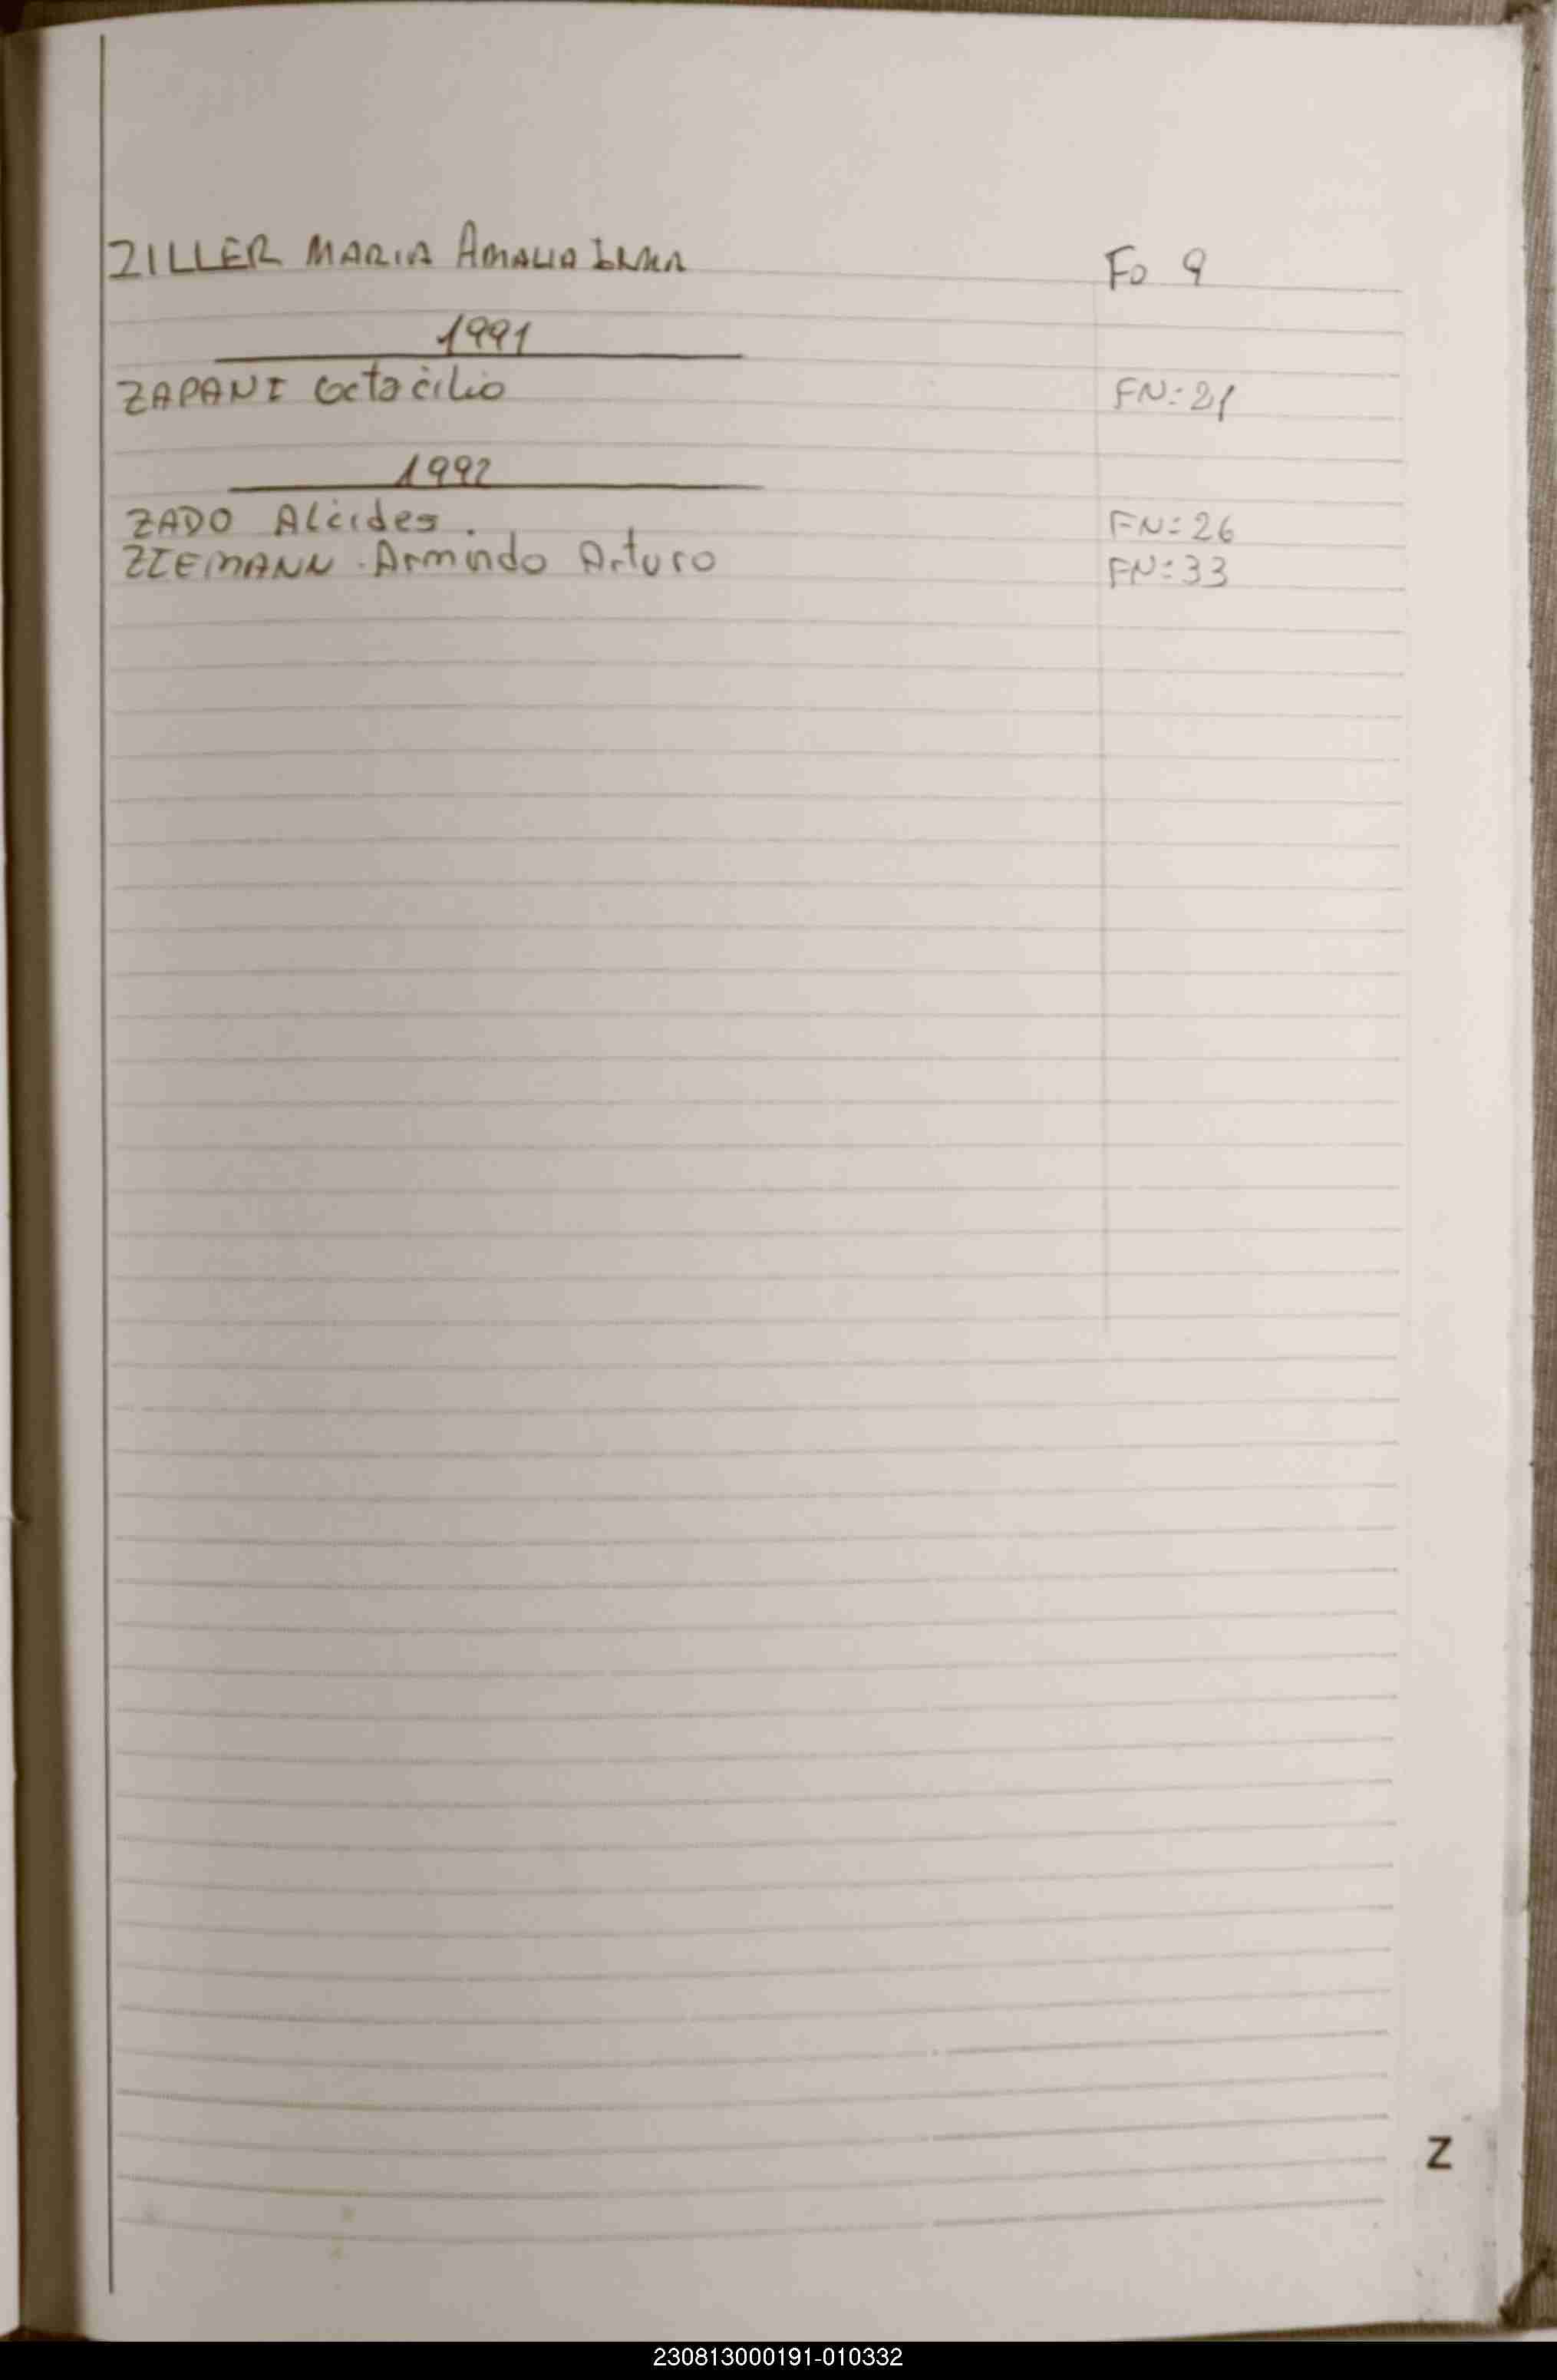 ZILLER MARIA AMALIA IRMA Fo 9
1991
ZAPANI Octacilio FN: 21
1992
ZADO Alcides. FN: 26
ZIEMANN Armindo Arturo FN: 33
Z
230813000191-010332